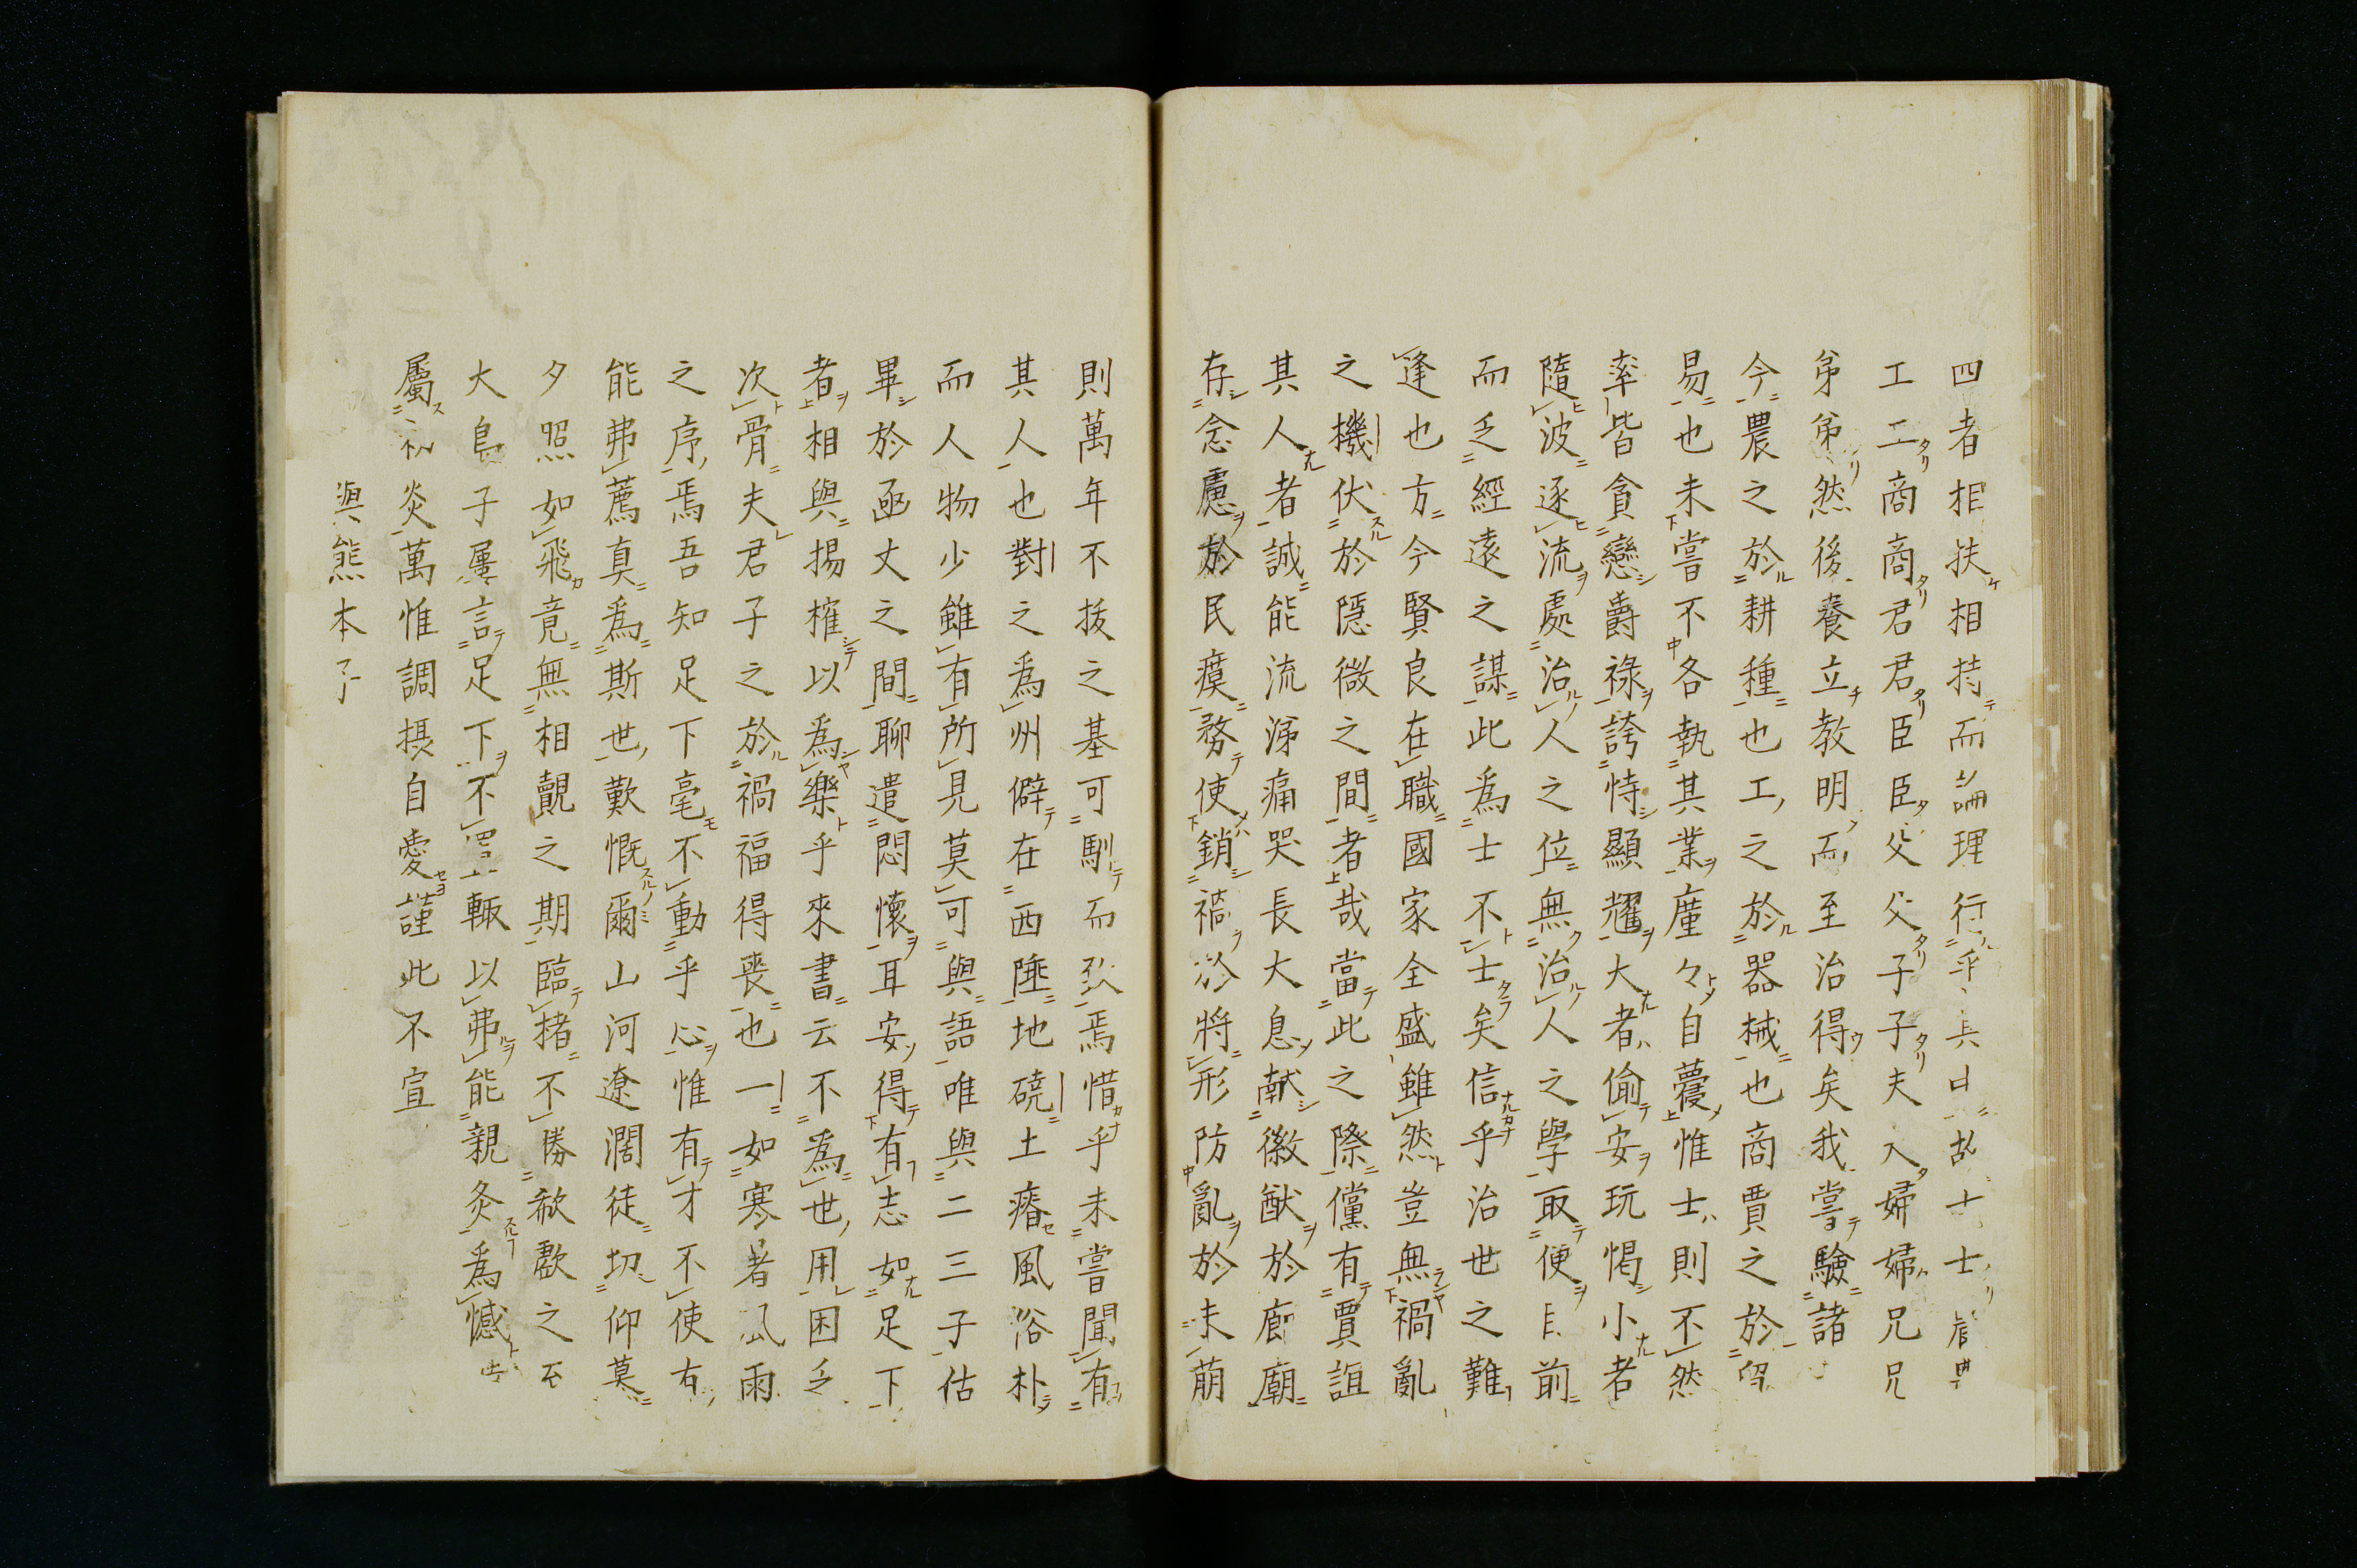 四者相扶相持而論理行乎其中故士士農農
工工商商君君臣臣父父子子夫夫婦婦兄兄
弟弟然後養立教明而至治得矣我嘗驗諸
今農之於耕種也工之於器械也商賈之於
易也未嘗不各執其業產々自蹷惟士則不然
率皆貪戀爵祿誇恃顯耀大者偷安玩愒小者
隨波逐流處治人之位無治人之學取便目前
而乏經遠之謀此為士不士矣信乎治世之難
逢也方今賢良在職國家全盛雖然豈無禍亂
之機伏於隱微之間者哉當此之際儻有賈誼
其人者誠能流涕痛哭長大息献徽猷於廊廟
存念慮於民瘼務使銷禍於將形防亂於未萠
則萬年不拔之基可馴而致焉惜乎未嘗聞有
其人也對之為州僻在西陲地磽土瘠風俗朴
而人物少雖有所見莫可與語唯與二三子估
畢於函丈之間聊遣悶懷耳安得有志如足下
者相與揚搉以為樂乎來書云不為世用困乏
次骨夫君子之於禍福得喪也一如寒暑風雨
之序焉吾知足下毫不動乎心惟有才不使右
能弗薦真為斯世歎慨爾山河遼濶徒切仰莫
夕照如飛竟無相覿之期臨楮不勝欷歔之至
大島子屢言足下不置輙以弗能親炙為憾
屬炎萬惟調摂自愛謹此不宣
與熊本了